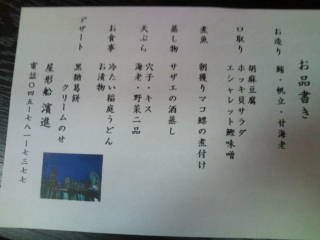 お品書き
お造り　鮪・帆立・甘海老
胡麻豆腐
口取り　ホッキ貝サラダ
エシャレット鰹味噌
煮魚　朝獲りマコ鰈の煮付け
蒸し物　サザエの酒蒸し
天ぷら　穴子・キス
海老・野菜二品
お食事　冷たい稲庭うどん
お漬物
デザート　黒糖葛餅
クリームのせ
屋形船 濱進
電話〇四五ー七八一ー七三七七